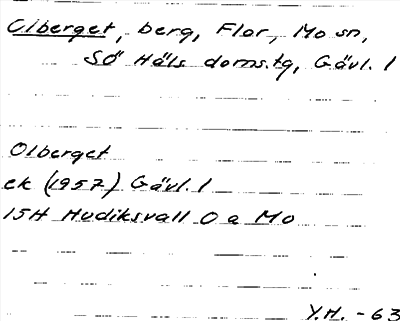 Olberget, berg, Flor, Mo sn,
Sö Häls doms.tg, Gävl. l
Olberget
ek (1957) Gävl. l
15H Hudiksvall O a Mo
Y.H. - 63